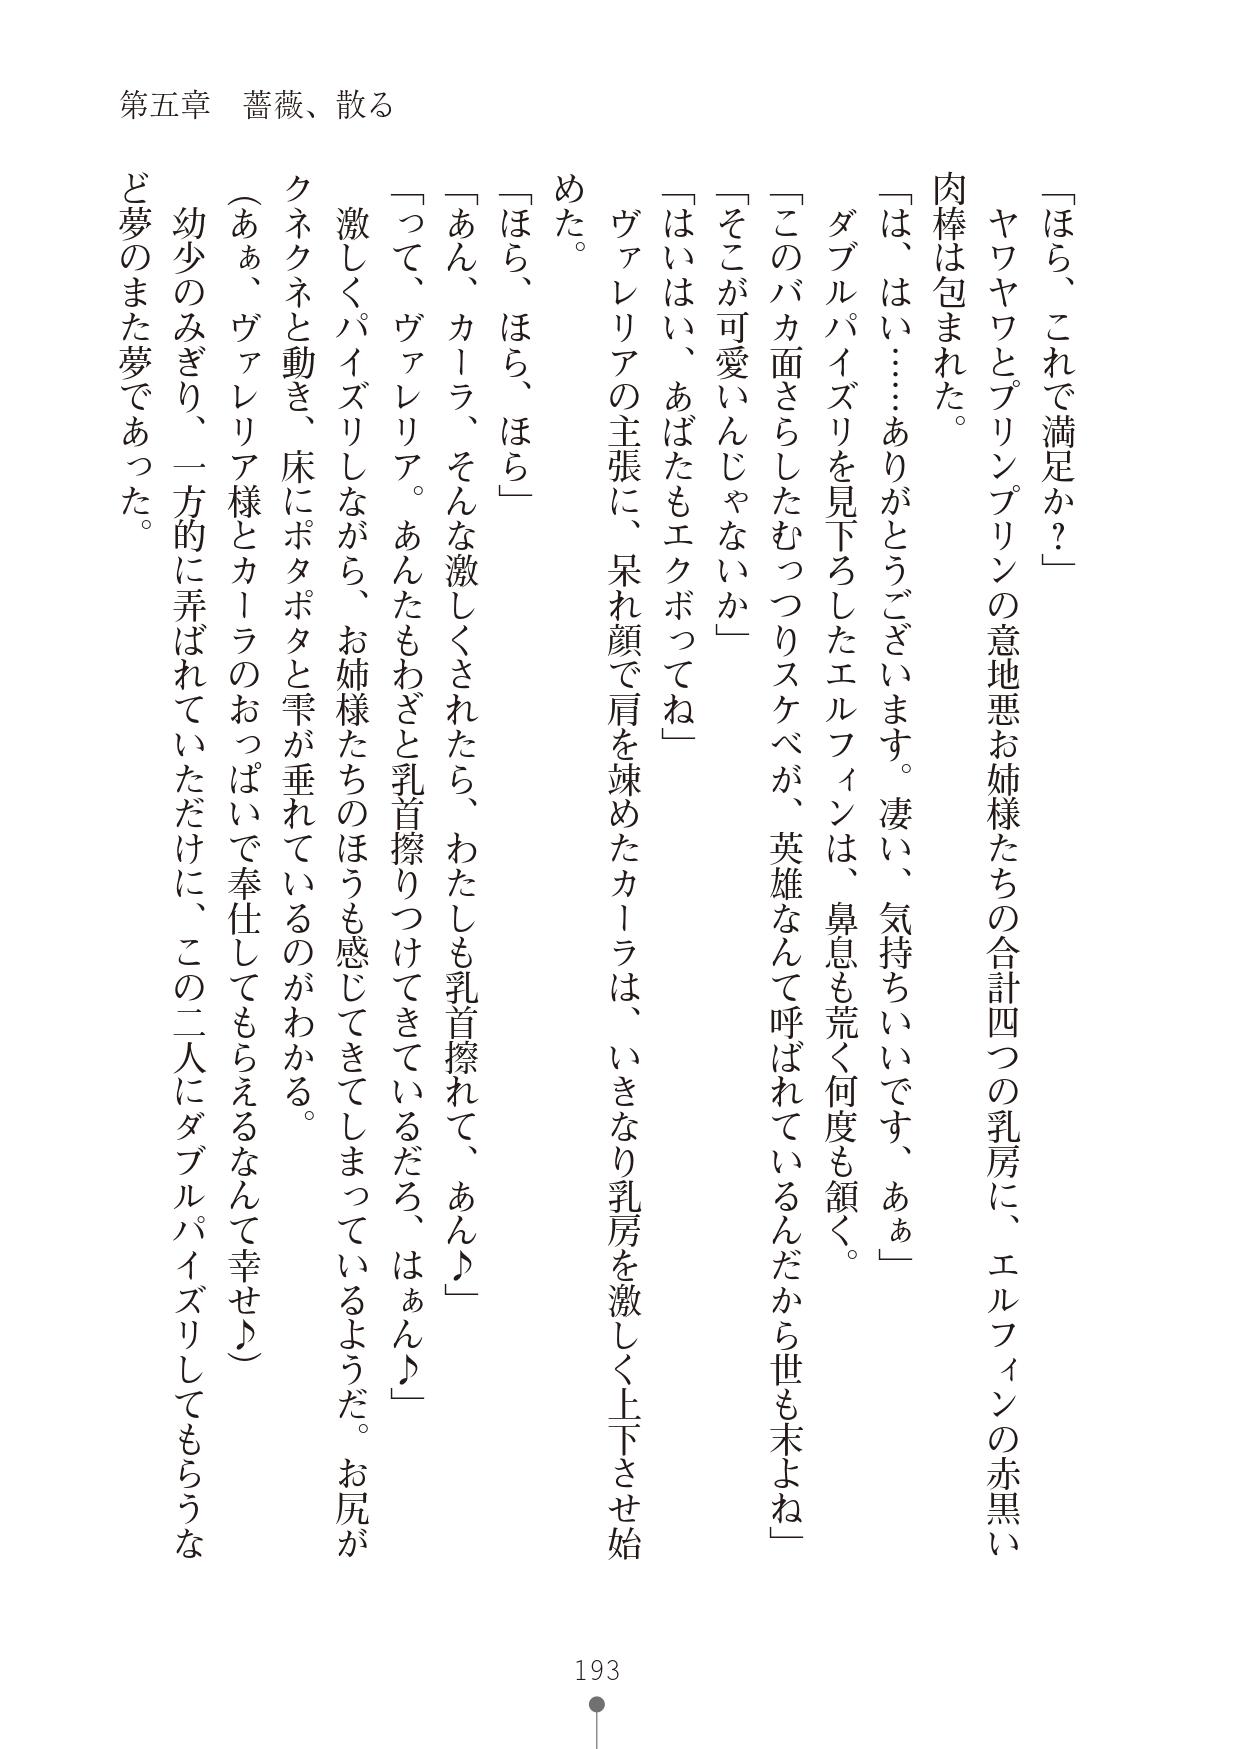 第五章　薔薇、散る
「ほら、これで満足か？」
　ヤワヤワとプリンプリンの意地悪お姉様たちの合計四つの乳房に、エルフィンの赤黒い
肉棒は包まれた。
「は、はい……ありがとうございます。凄い、気持ちいいです、あぁ」
　ダブルパイズリを見下ろしたエルフィンは、鼻息も荒く何度も頷く。
「このバカ面さらしたむっつりスケベが、英雄なんて呼ばれているんだから世も末よね」
「そこが可愛いんじゃないか」
「はいはい、あばたもエクボってね」
　ヴァレリアの主張に、呆れ顔で肩を竦めたカーラは、いきなり乳房を激しく上下させ始
めた。
「ほら、ほら、ほら」
「あん、カーラ、そんな激しくされたら、わたしも乳首擦れて、あん♪」
「って、ヴァレリア。あんたもわざと乳首擦りつけてきているだろ、はぁん♪」
　激しくパイズリしながら、お姉様たちのほうも感じてきてしまっているようだ。お尻が
クネクネと動き、床にポタポタと雫が垂れているのがわかる。
（あぁ、ヴァレリア様とカーラのおっぱいで奉仕してもらえるなんて幸せ♪）
　幼少のみぎり、一方的に弄ばれていただけに、この二人にダブルパイズリしてもらうな
ど夢のまた夢であった。
193